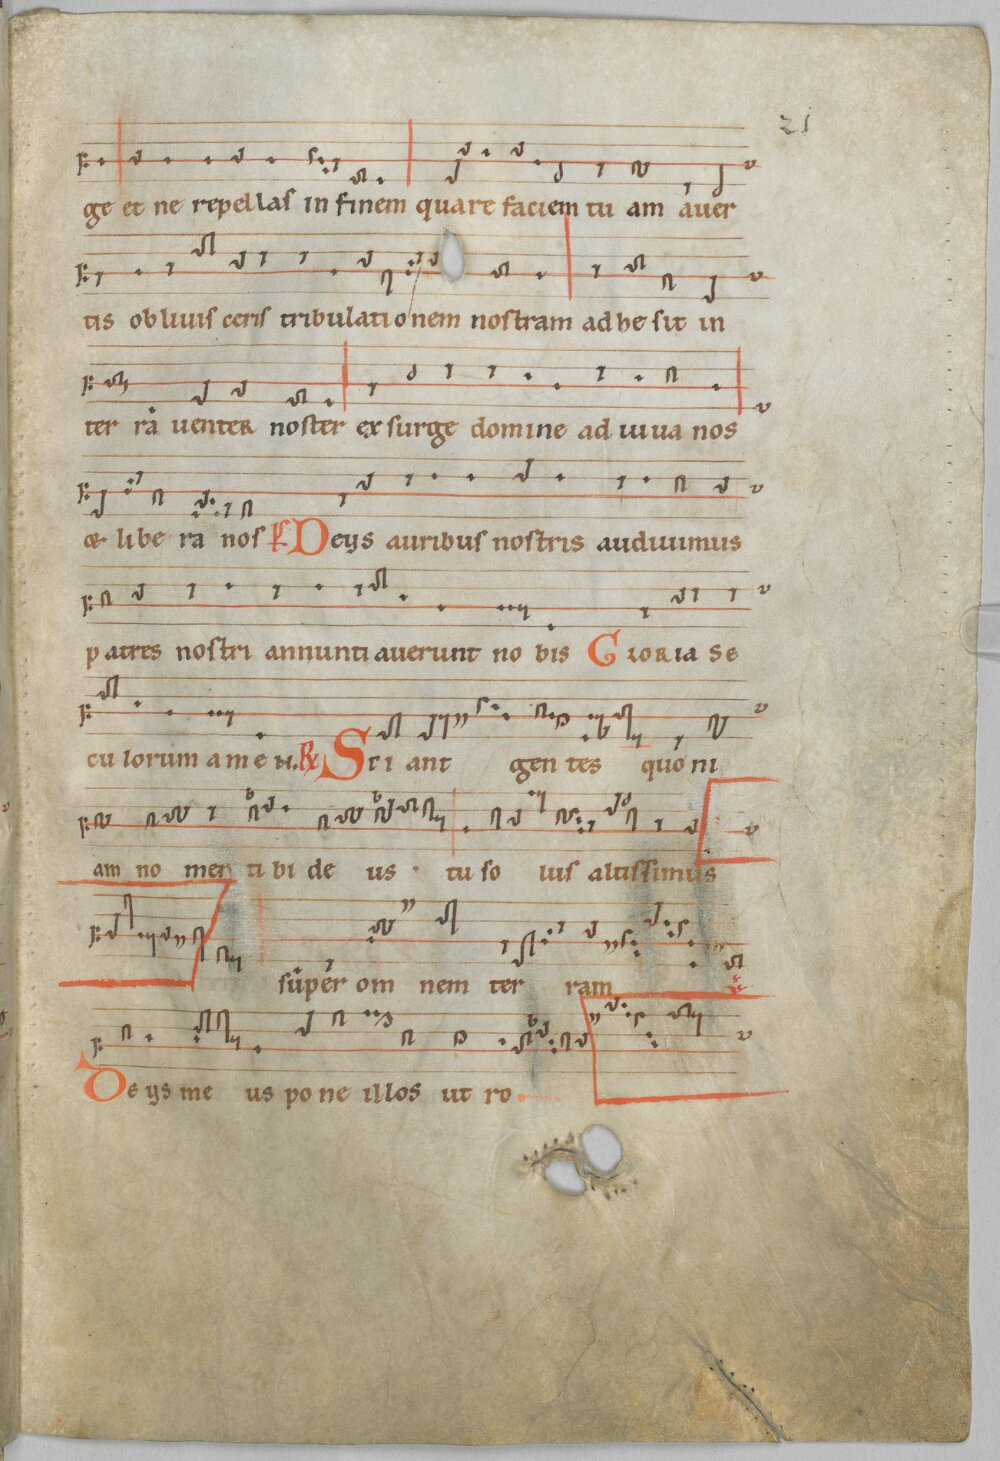 21
ge et ne repellas in finem quare faciem tu am auer
tis obliuis ceris tribulationem nostram adhe sit in
ter ra uenter noster exsurge domine ad iuua nos
& libe ra nos Ps Deus auribus nostris audiuimus
patres nostri annuntiauerunt no bis Gloria se
cu lorum amen. R Sci ant gen tes quo ni
am no men ti bi de us · tu so lus altissimus
super om nem ter ram V
Deus me us pone illos ut ro.